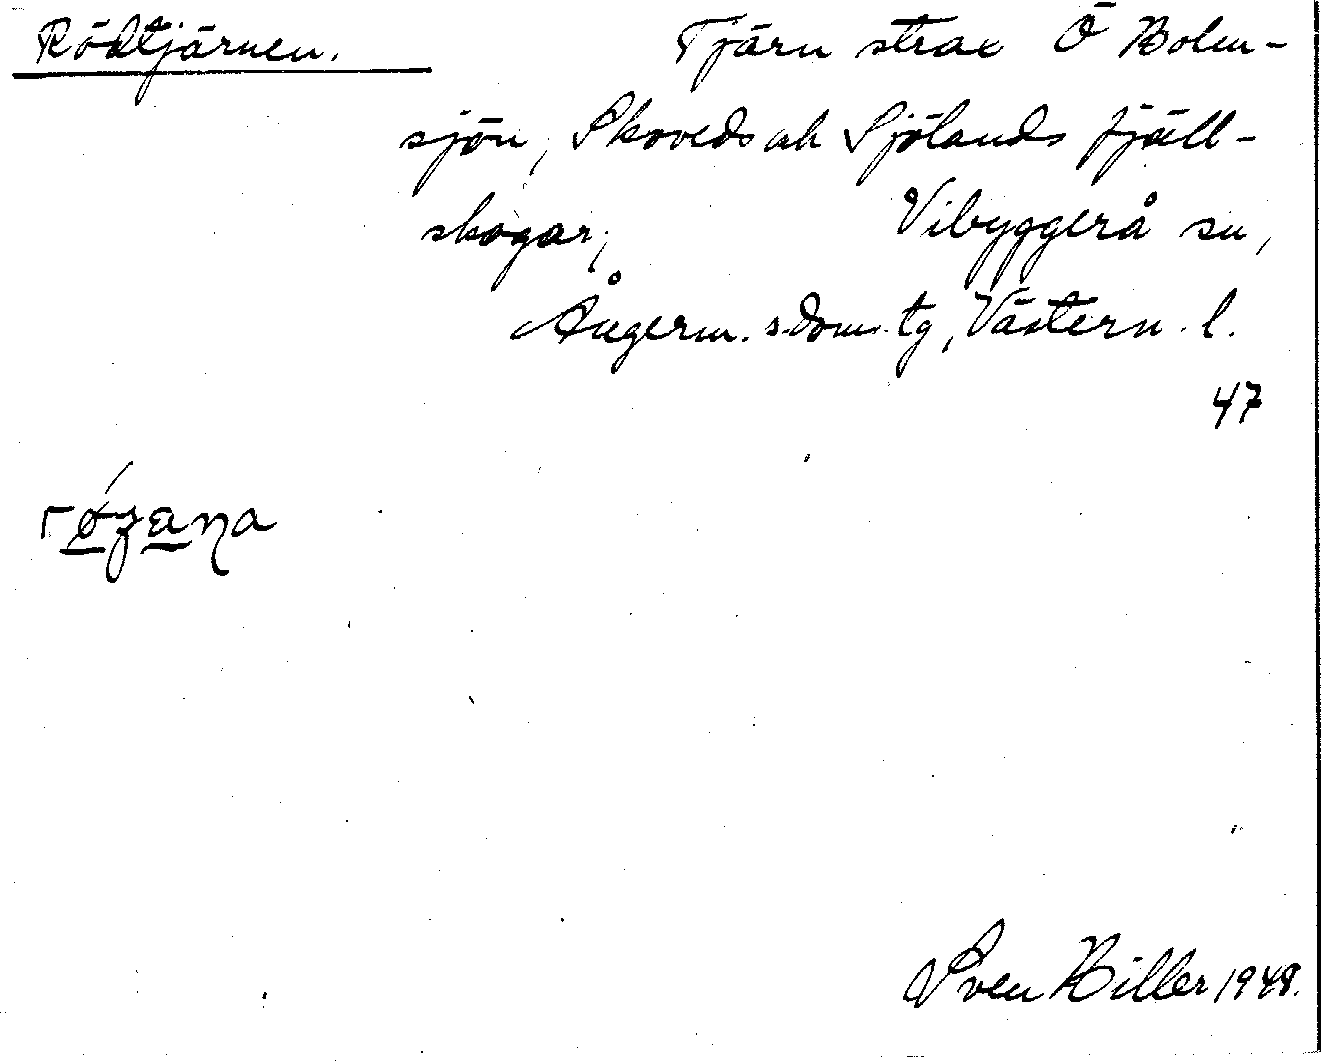 Rödtjärnen.
Tjärn strax Ö Bolen-
sjön, Skoveds ah Sjölands fjäll-
skogar,
Vibyggerå sn,
Ångerm. s. dom. tg, Västern. l.
47
Sven Hiller 1948.